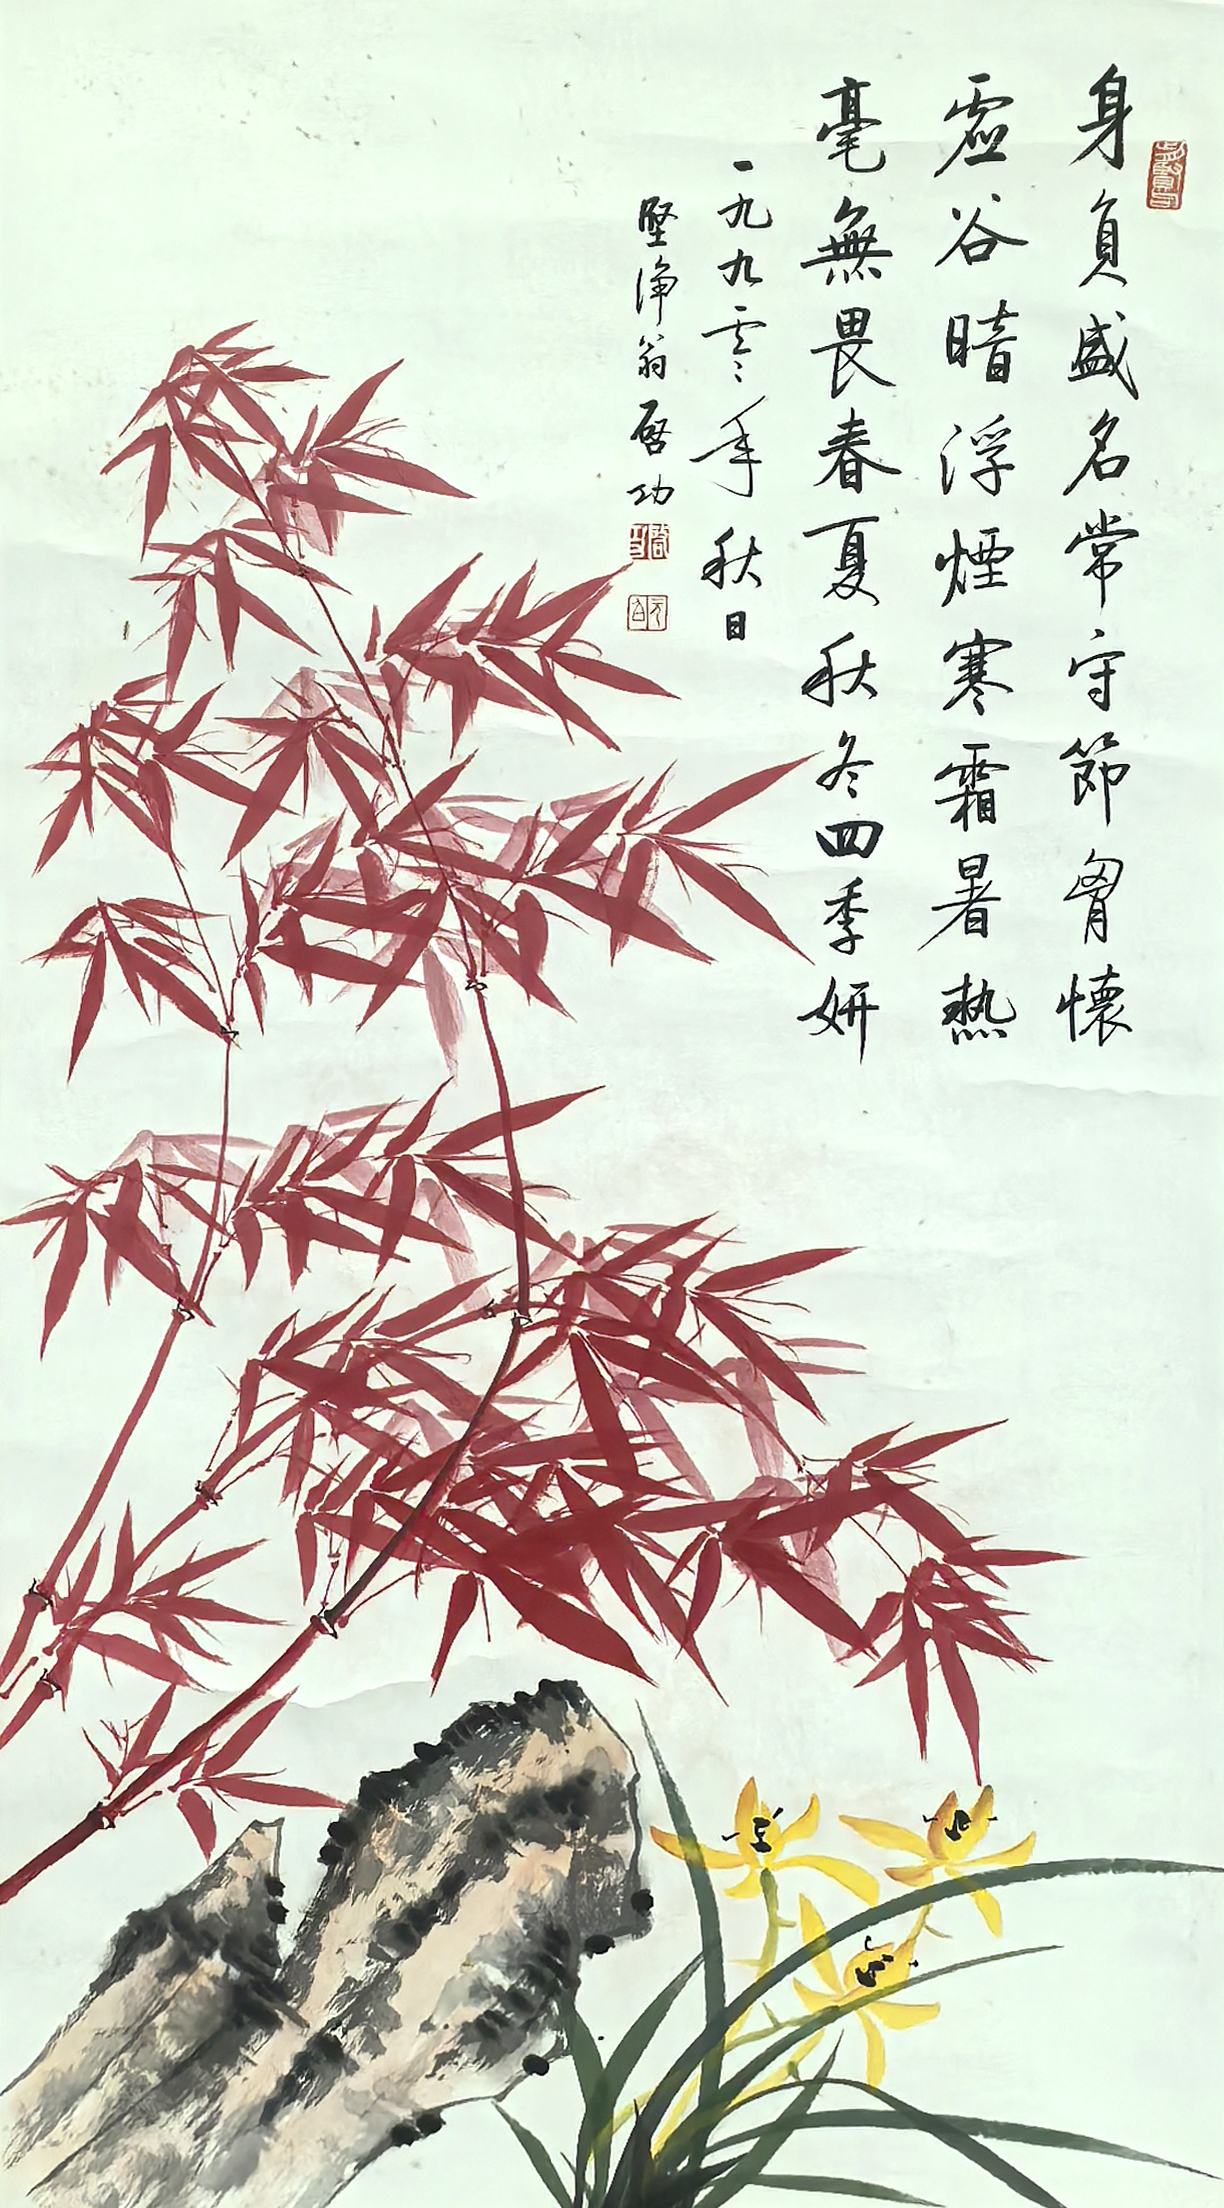 身負盛名常守節胷懷
虛谷暗浮煙寒霜暑熱
毫無畏春夏秋冬四季妍
一九九零年秋日
堅淨翁啓功
啟功
元白